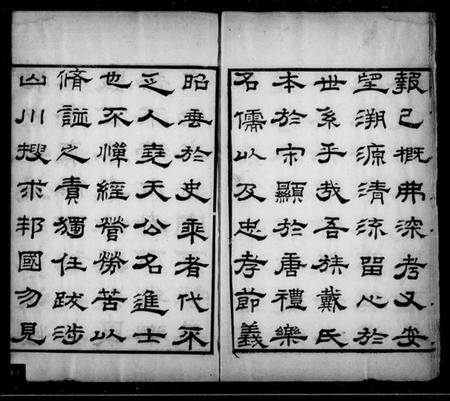 報已概弗深考又安
望溯源清流留心於
世系乎我吾族戴氏
本於宋顯於唐禮樂
名儒以及忠孝節義
昭垂於史乘者代不
乏人堯天公名進士
也不憚經營勞苦以
脩譜之責獨任跋涉
山川搜求邦國勿見